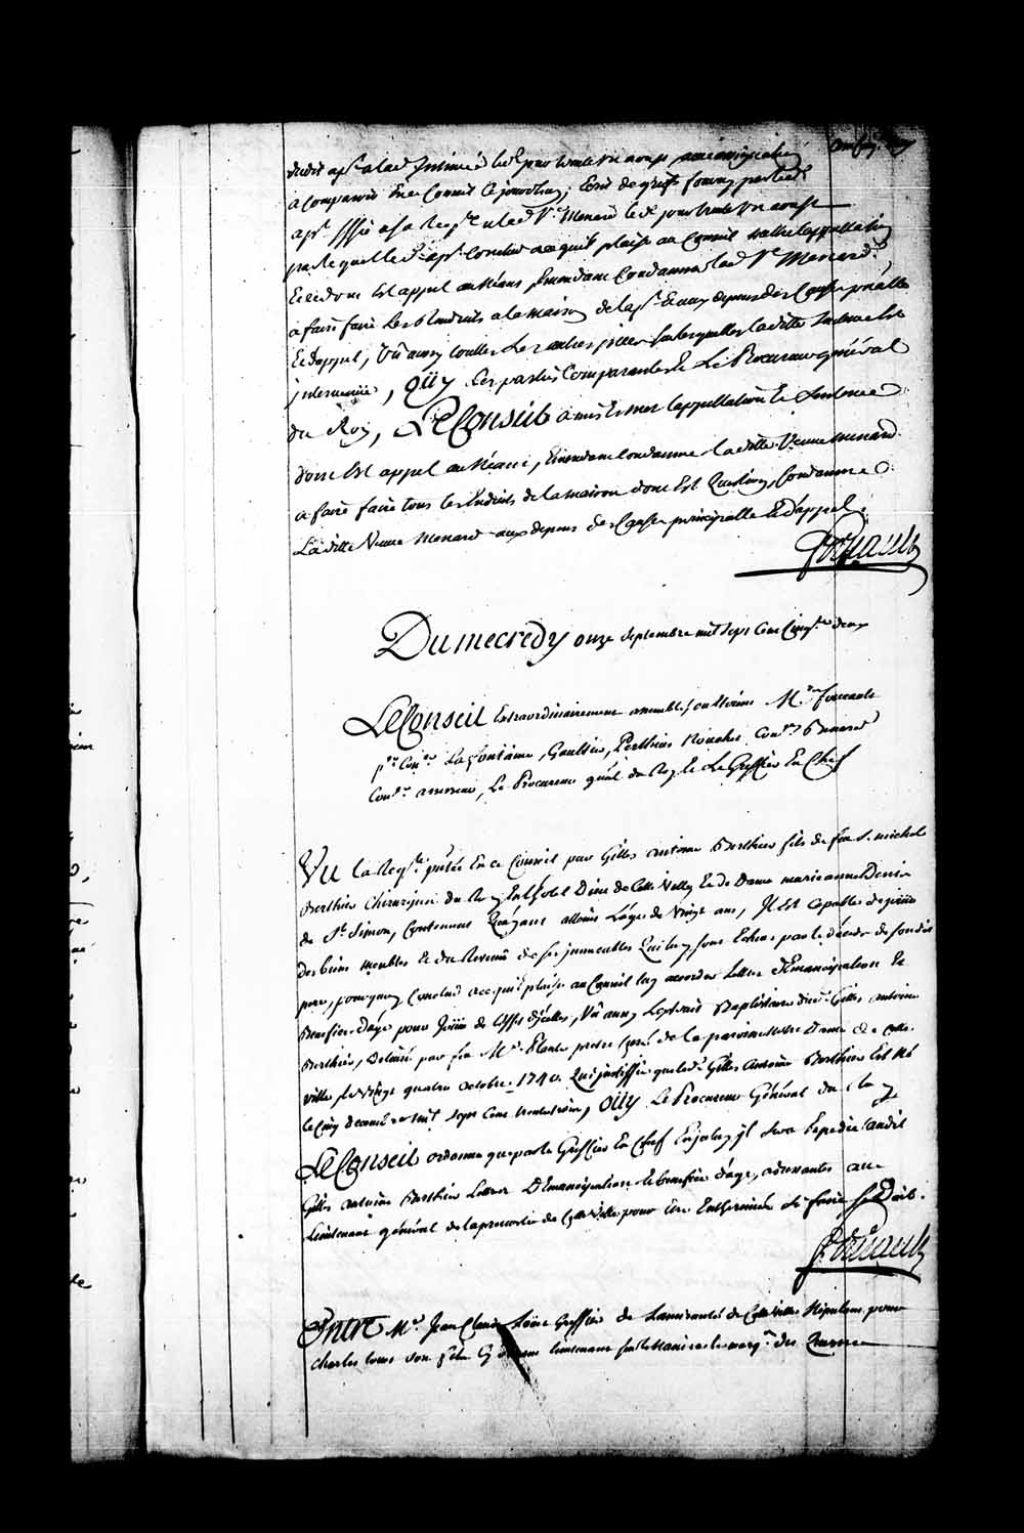 a comparoir en ce Conseil ce jourdhuy;
par lequelle led. apt. conclud a ce quil plaise au Conseil mettre lappellation
Et ce dont Est appel au Néant Emandant Condamner lad. Ve. Menard
a faire faire les Enduits a la maison de lapt. Et aux depens des Causes prâlle
Et d'appel, Vû aussy touttes les autres pieces sur lesquelles laditte Sentence Est
jntervenüe, Oüy les parties Comparantes Et Le Procureur général
du Roy, Le Conseil a mis Et met l'appellation Et Sentence
dont Est appel au Néant, Emandant condamne laditte Veuve Menard
a faire faire tous les Enduits de la maison dont Est Question, Condamne
La ditte Veuve Menard aux depens des Causes principalle Et d'appel.
Foucault
Du mecredy onze septembre mil sept Cent Cinqte. deux
Le Conseil Extraordinairement assemblé, ou Etoient Mrs. foucault
pr. Conr. Lafontaine, Gaultier, Perthuis Nouchet Conrs. Benard
Conr. assesseur, Le Procureur gnâl du Roy Et Le Greffier En Chef
Vu la Reqte. pntée En ce Conseil par Gilles antoine Berthier fils de feu S. michel
Berthier Chirurgien du Roy En Lhotel Dieu de Cette Ville, Et de Dame marie anne Denis
de St. Simon, Contenant Quayant atteint L'age de Vingt ans, Il Est capable de joüir
des biens meubles Et du Revenu de ses jmmeubles Qui luy sont Echus par le décès de son dit
pere, pourquoy Conclud a ce quil plaise au Conseil luy accorder lettres d'Emancipation Et
Benefice d'age pour Joüir de L'effet d'jcelles, Vû aussy Lextrait Baptistaire dud. Gilles antoine
Berthier, Delivré par feu Mr. Plante pretre Curé de la paroisse Notre Dame de cette
ville, le Vingt quatre octobre 1740. Qui justiffie que led. Gilles Antoine Berthier Est Né
le Cinq decembre mil sept Cent trente trois, Oüy Le Procureur Général du Roy
Le Conseil ordonne que par le Greffier En Chef En jceluy jl sera Expedié audit
Gilles antoine Berthier Lettres D'Emancipation Et benefice d'age, adressantes au
Lieutenant général de la prevosté de Cette Ville pour Etre Entherinées
Foucault
Entre Me. Jean Claude Greffier de Lamirauté de Cette Ville stipulant pour
Charles son fils